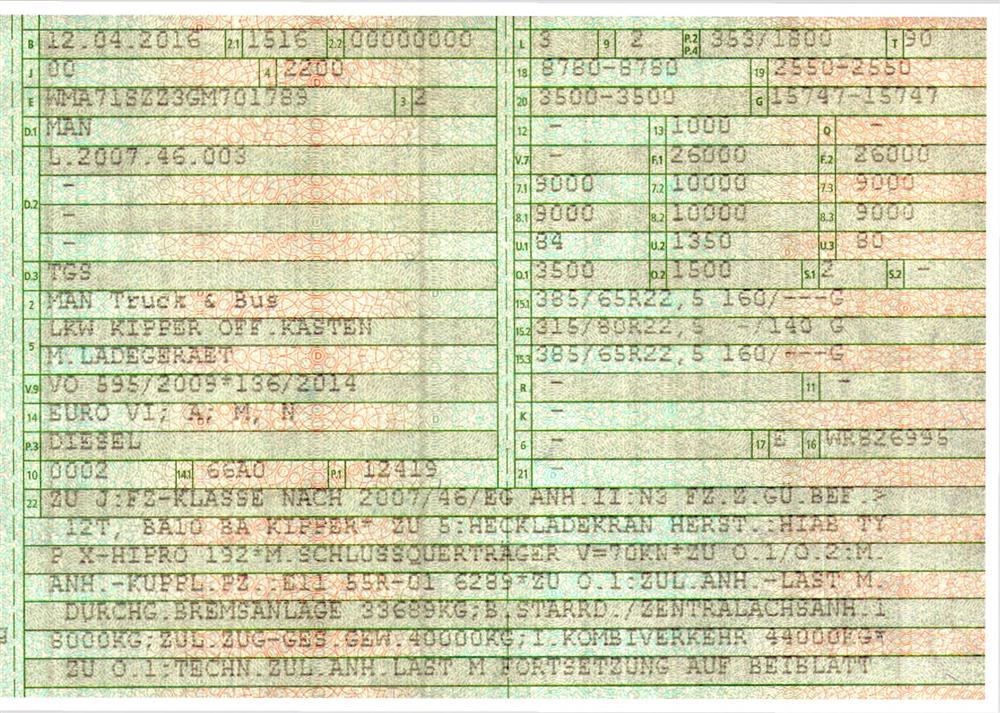 B 12.04.2016 2.1 1516 2.2 00000000
J 00 4 2200
E WMA71SZZ3GM701789 3 2
D.1 MAN
L.2007.46.003
-
D.2 -
-
D.3 TGS
2 MAN Truck & Bus
LKW KIPPER OFF.KASTEN
5
M.LADEGERAET
V.9 VO 595/2009*136/2014
14 EURO VI; A; M, N
P.3 DIESEL
10 0002 14.1 66A0 P.1 12419
L 3 9 2 P.2 P.4 353/1800 T 90
18 8780-8780 19 2550-2550
20 3500-3500 G 15747-15747
12 - 13 1000 Q -
V.7 - F.1 26000 F.2 26000
7.1 9000 7.2 10000 7.3 9000
8.1 9000 8.2 10000 8.3 9000
U.1 84 U.2 1350 U.3 80
O.1 3500 O.2 1500 S.1 2 S.2 -
15.1 385/65R22,5 160/---G
15.2 315/80R22,5 -/140 G
15.3 385/65R22,5 160/---G
R - 11 -
K -
6 - 17 E 16 WR826995
21 -
22 ZU J:FZ-KLASSE NACH 2007/46/EG ANH.II:N3 FZ.Z.GÜ.BEF.>
12T, BA10 BA KIPPER* ZU 5:HECKLADEKRAN HERST.:HIAB TY
P X-HIPRO 192*M.SCHLUSSQUERTRÄGER V=70KN*ZU O.1/O.2:M.
ANH.-KUPPL.PZ.:E11 55R-01 6289*ZU O.1:ZUL.ANH.-LAST M.
DURCHG.BREMSANLAGE 33689KG;B.STARRD./ZENTRALACHSANH.1
8000KG;ZUL.ZUG-GES.GEW.40000KG;I.KOMBIVERKEHR 44000KG*
ZU O.1:TECHN.ZUL.ANH LAST M FORTSETZUNG AUF BEIBLATT